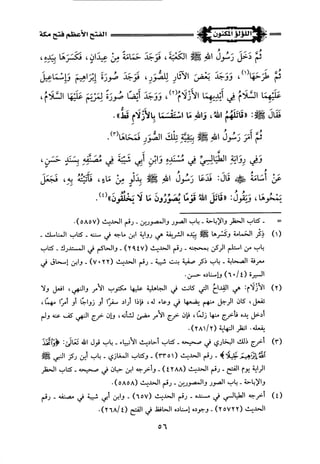 الفتح الأعظم فتح مكة
اللؤلؤ المكنون
ثم دخل رسول الله ﷺ الكعبة، فوجد حمامة من عيدان، فكسرها بيده،
ثم طرحها(١)، ووجد بعض الآثار للصور، فوجد صورة إبراهيم وإسماعيل
عليهما السلام في أيديهما الأزلام(٢)، ووجد أيضا صورة لمريم عليها السلام،
فقال ﷺ: «قاتلهم الله، والله ما استقسما بالأزلام قط».
ثم أمر رسول الله ﷺ ببقية تلك الصور فمحاها(٣).
وفي رواية الطيالسي في مسنده وابن أبي شيبة في مصنفه بسند حسن،
عن أسامة ﷺ قال: فدعا رسول الله ﷺ بدلو من ماء، فأتيته به، فجعل
يمحوها، ويقول: «قاتل الله قوما يصورون ما لا يخلقون»(٤).
= كتاب الحظر والإباحة ـ باب الصور والمصورين ـ رقم الحديث (٥٨٥٧).
(١) ذكر الحمامة وكسرها ﷺ بيده الشريفة هي رواية ابن ماجه في سننه ـ كتاب المناسك ـ
باب من استلم الركن بمحجنه ـ رقم الحديث (٢٩٤٧) ـ والحاكم في المستدرك ـ كتاب
معرفة الصحابة ـ باب ذكر صفية بنت شيبة ـ رقم الحديث (٧٠٢٢) ـ وابن إسحاق في
السيرة (٦٠/٤) وإسناده حسن.
(٢) الأزلام: هي القداح التي كانت في الجاهلية عليها مكتوب الأمر والنهي، افعل ولا
تفعل، كان الرجل منهم يضعها في وعاء له، فإذا أراد سفرا أو زواجا أو أمرا مهما،
أدخل يده فأخرج منها زلما، فإن خرج الأمر مضى لشأنه، وإن خرج النهي كف عنه ولم
يفعله. انظر النهاية (٢٨١/٢).
(٣) أخرج ذلك البخاري في صحيحه ـ كتاب أحاديث الأنبياء ـ باب قول الله تعالى: ﴿واتخذ
الله إبراهيم خليلا﴾ ـ رقم الحديث (٣٣٥١) ـ وكتاب المغازي ـ باب أين ركز النبي ﷺ
الراية يوم الفتح ـ رقم الحديث (٤٢٨٨) ـ وأخرجه ابن حبان في صحيحه ـ كتاب الحظر
والإباحة ـ باب الصور والمصورين ـ رقم الحديث (٥٨٥٨).
(٤) أخرجه الطيالسي في مسنده ـ رقم الحديث (٦٥٧) ـ وابن أبي شيبة في مصنفه ـ رقم
الحديث (٢٥٧٢٢) ـ وجود إسناده الحافظ في الفتح (٢٦٨/٤).
٥٦